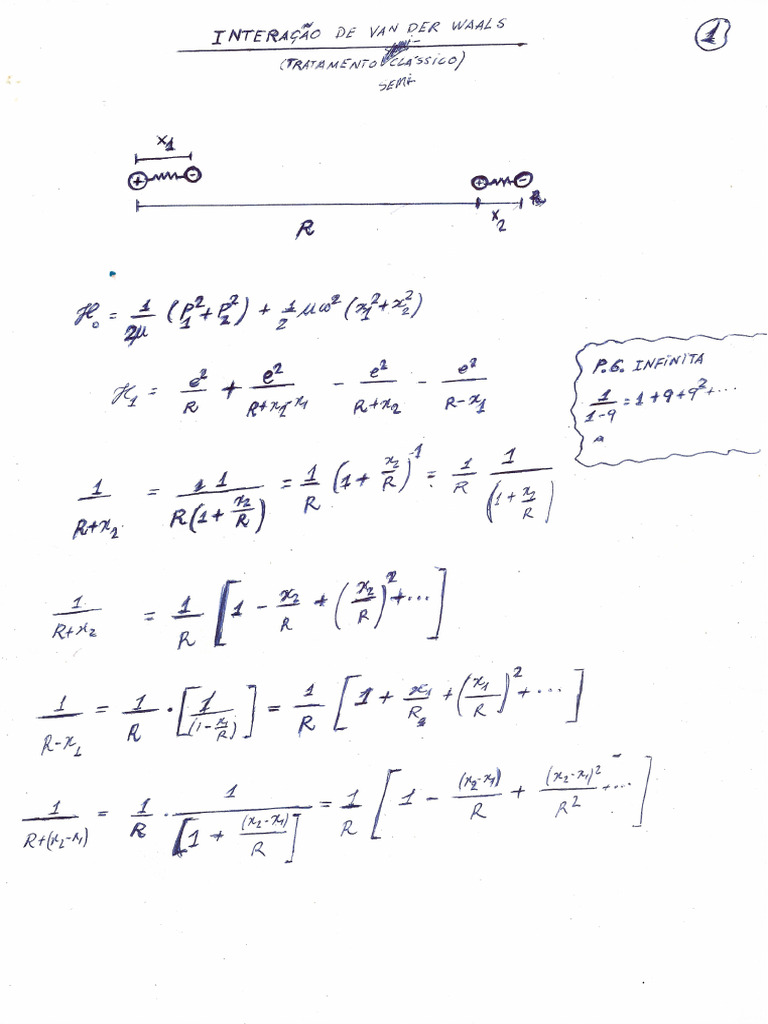 INTERAÇÃO DE VAN DER WAALS
1
(TRATAMENTO CLÁSSICO)
SEMI
x₁
+ - + -
R x₂
H₀ = 1/2μ (P₁² + P₂²) + 1/2 μω² (x₁² + x₂²)
H₁ = e²/R + e²/(R+x₂-x₁) - e²/(R+x₂) - e²/(R-x₁)
P.G. INFINITA
1/(1-q) = 1 + q + q² + ...
1/(R+x₂) = 1/(R(1 + x₂/R)) = 1/R (1 + x₂/R)⁻¹ = 1/R 1/(1 + x₂/R)
1/(R+x₂) = 1/R [1 - x₂/R + (x₂/R)² + ...]
1/(R-x₁) = 1/R · [1/(1 - x₁/R)] = 1/R [1 + x₁/R + (x₁/R)² + ...]
1/(R+(x₂-x₁)) = 1/R · 1/[1 + (x₂-x₁)/R] = 1/R [1 - (x₂-x₁)/R + (x₂-x₁)²/R² + ...]